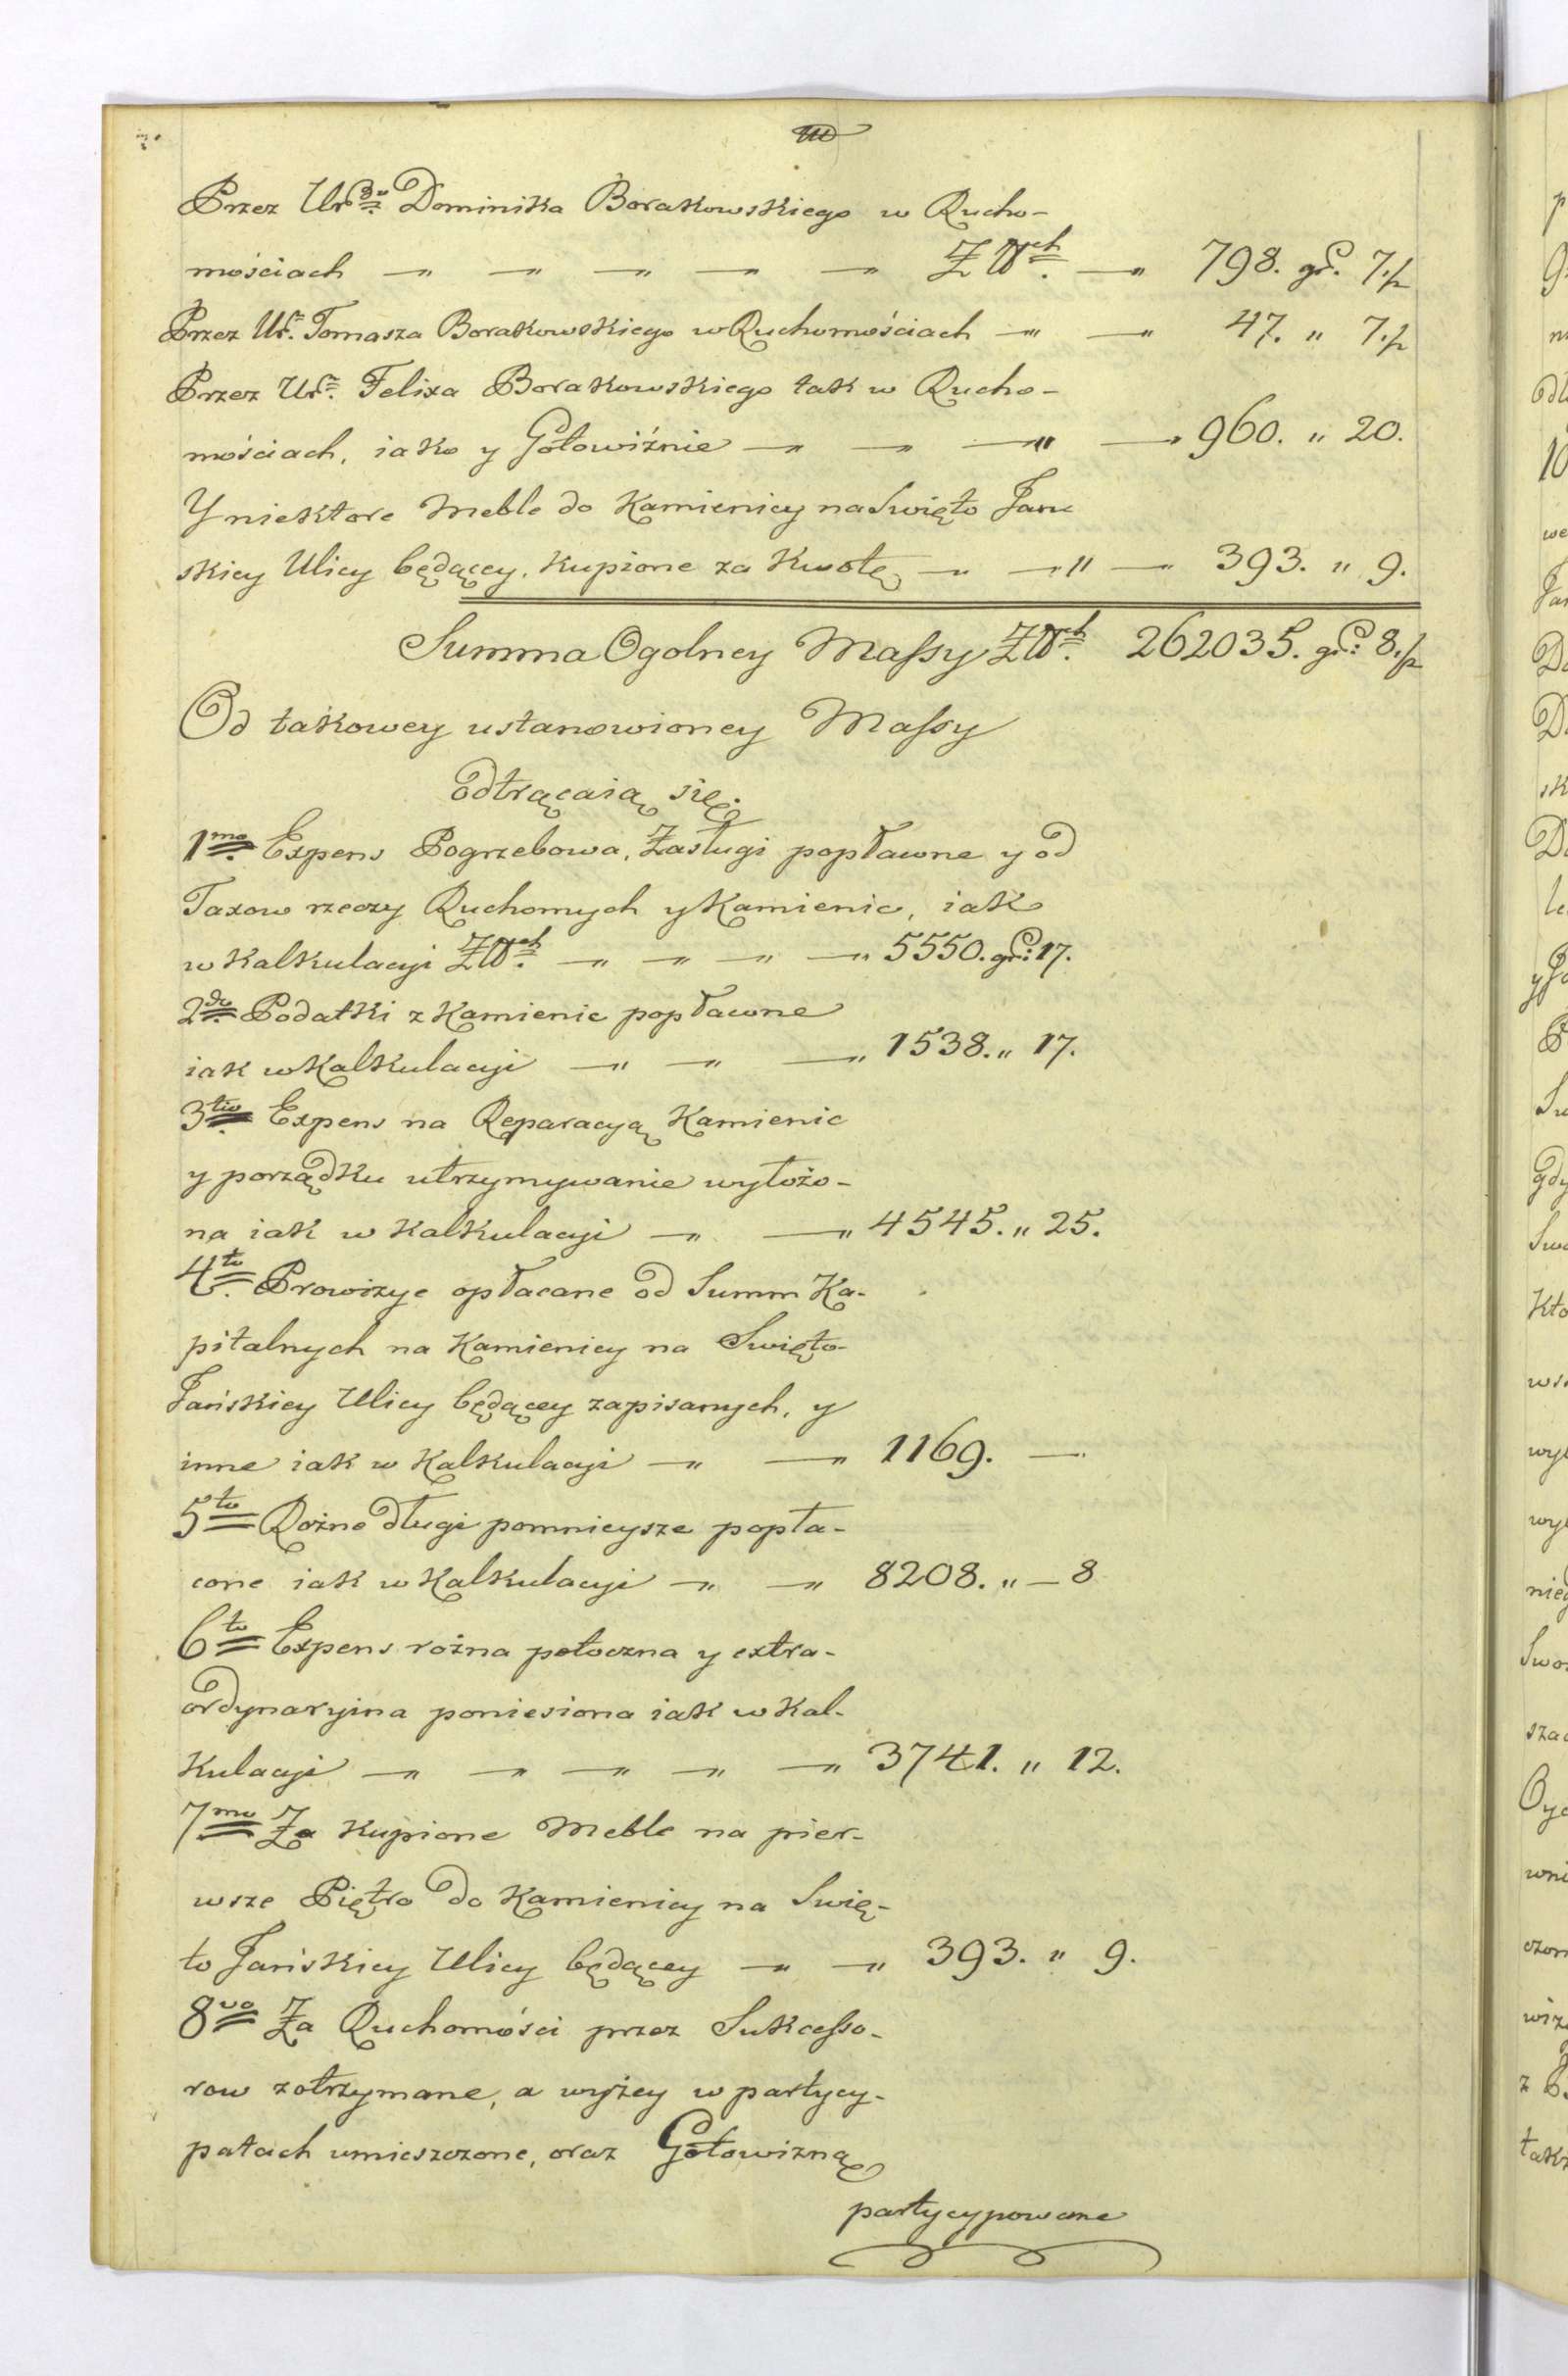 Przez Ur: Dominika Borakowskiego w Rucho-
mościach — — — — — Złłch. — 798. gr. 7.½
Przez Ur: Tomasza Borakowskiego w Ruchomościach — — 47. " 7.½
Przez Ur: Felixa Borakowskiego tak w Rucho-
mościach, iako y Gotowiźnie — — — — 960. " 20.
Y niektore Meble do Kamienicy na Swięto Jan
skiey Ulicy będącey, kupione za Kwotę — — — 393. " 9.
Summa Ogolney Massy Złłch. 262035. gr: 8.½
Od takowey ustanowioney Massy
odtrącaią się.
1mo Expens Pogrzebowa, Zasługi popłacone y od
Taxow rzeczy Ruchomych y Kamienic, iak
w Kalkulacyi Złłch. — — — — 5550. gr: 17.
2do Podatki z Kamienic popłacone
iak w Kalkulacyi — — — 1538. " 17.
3tio Expens na Reparacyą Kamienic
y porządku utrzymywanie wyłożo-
na iak w Kalkulacyi — — 4545. " 25.
4to Prowizye opłacane od Summ Ka-
pitalnych na Kamienicy na Swięto-
Jańskiey Ulicy będącey zapisanych, y
inne iak w Kalkulacyi — — 1169. —
5to Rożne długi pomnieysze popła-
cone iak w Kalkulacyi — — 8208. " — 8
6to Expens rożna potoczna y extra-
ordynaryina poniesiona iak w Kal-
kulacyi — — — — — 3741. " 12.
7mo Za kupione Meble na pier-
wsze Piętro do Kamienicy na Swię-
to Jańskiey Ulicy będącey — — 393. " 9.
8vo Za Ruchomości przez Sukcesso-
row zotrzymane, a wyżey w partycy-
patach umieszczone, oraz Gotowizną
partycypowane